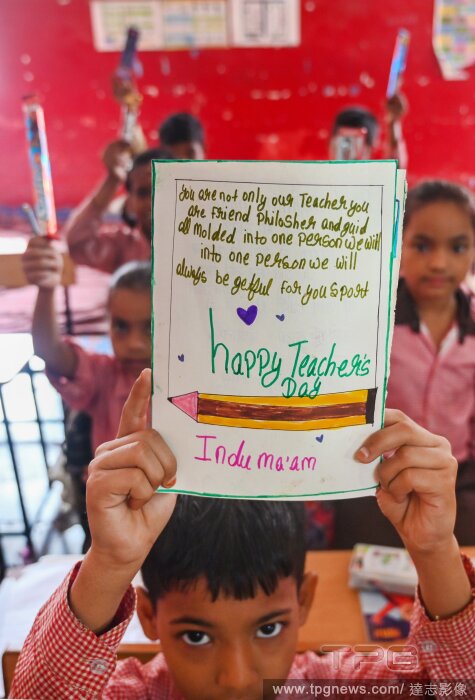 You are not only our Teacher you
are Friend Philosher and guid
all molded into one person we will
into one person we will
always be getful for you sport
happy Teacher's
DAY
Indu ma'am
TPG
www.tpgnews.com/達志影像